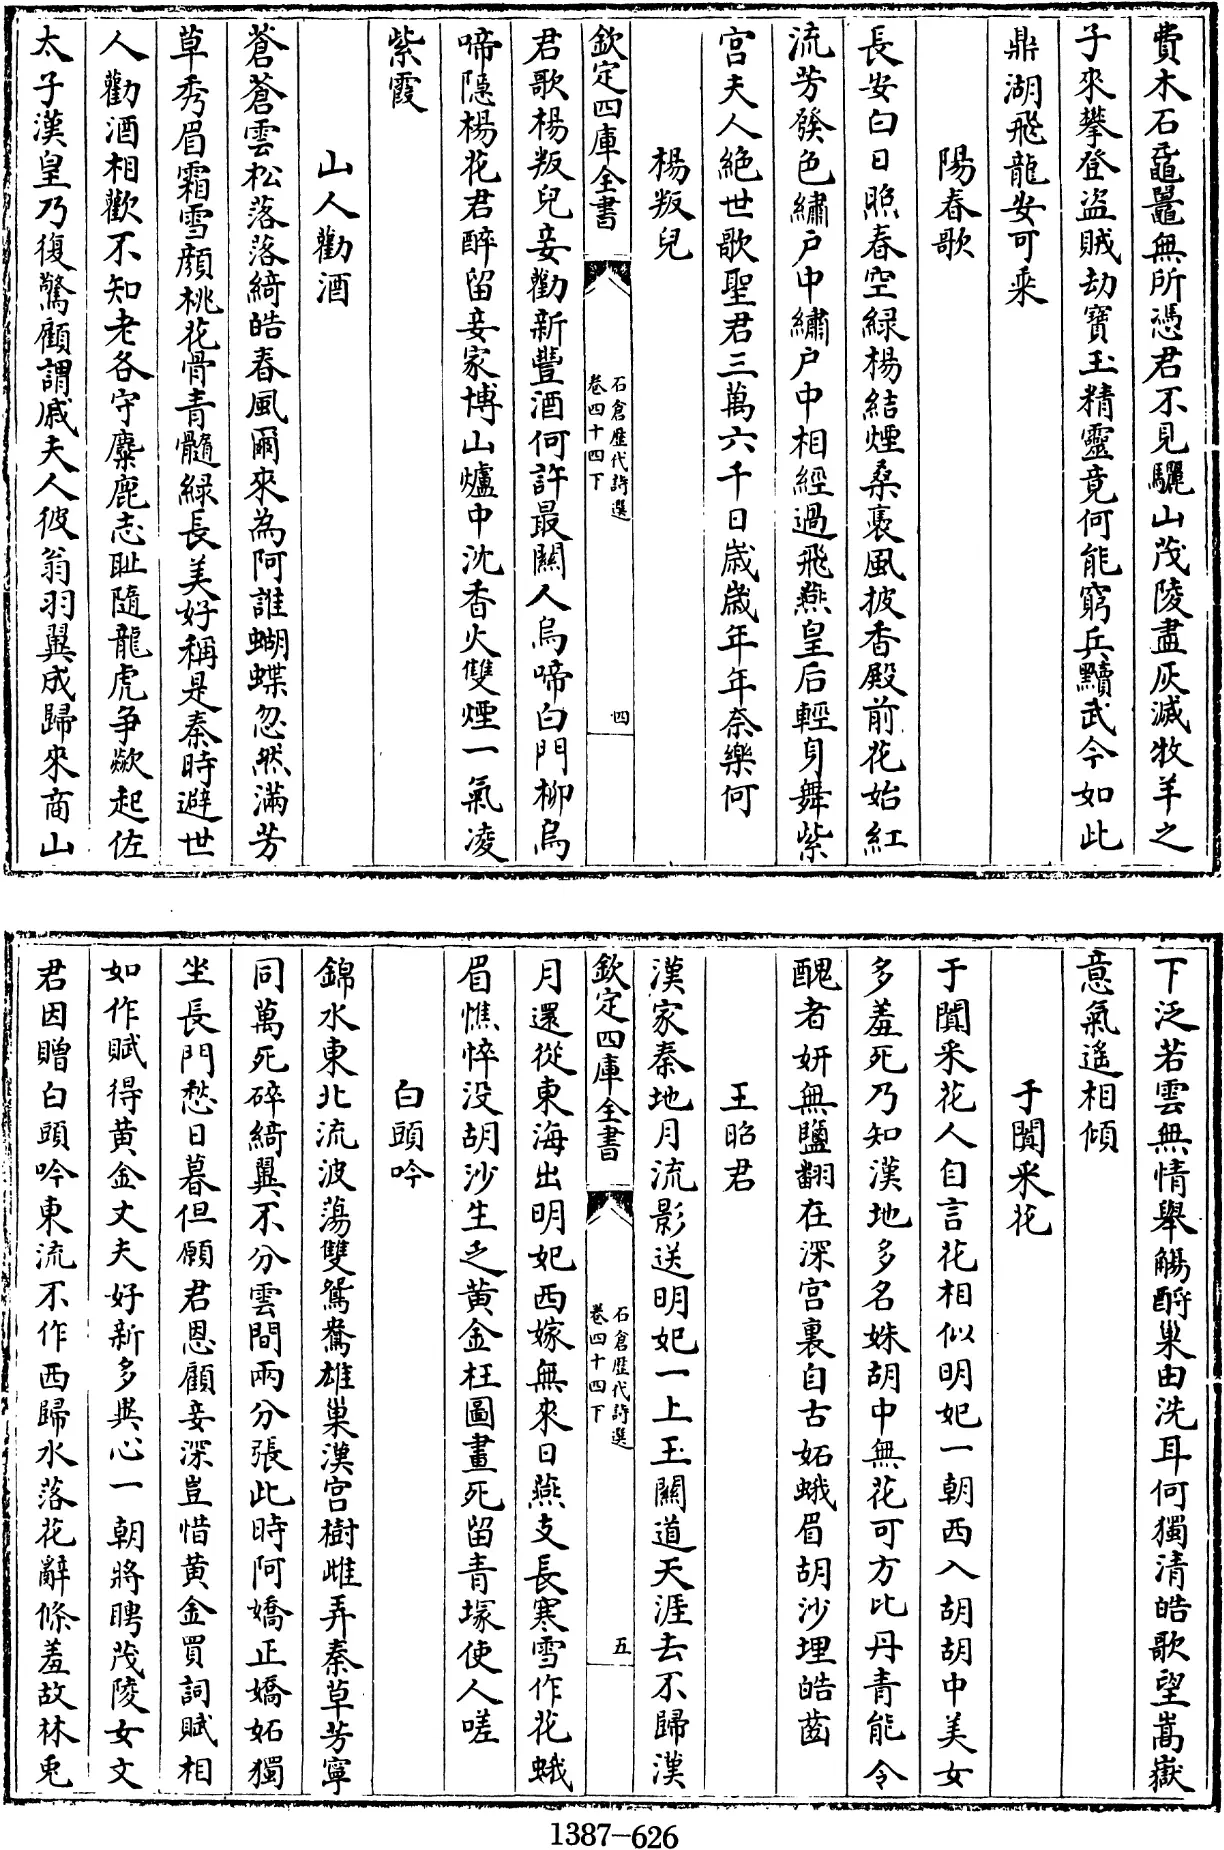 費木石黿鼉無所憑君不見驪山茂陵盡灰滅牧羊之
子來攀登盜賊劫寶玉精靈竟何能窮兵黷武今如此
鼎湖飛龍安可乘
陽春歌
長安白日照春空緑楊結煙桑裊風披香殿前花始紅
流芳發色繡户中繡户中相經過飛燕皇后輕身舞紫
宮夫人絶世歌聖君三萬六千日歲歲年年奈樂何
楊叛兒
欽定四庫全書
石倉歷代詩選
卷四十四下
四
君歌楊叛兒妾勸新豐酒何許最關人烏啼白門柳烏
啼隠楊花君醉留妾家博山爐中沈香火雙煙一氣凌
紫霞
山人勸酒
蒼蒼雲松落落綺皓春風爾來為阿誰蝴蝶忽然滿芳
草秀眉霜雪顔桃花骨青髓緑長美好稱是秦時避世
人勸酒相歡不知老各守麋鹿志耻隨龍虎争歘起佐
太子漢皇乃復驚顧謂戚夫人彼翁羽翼成歸來商山
下泛若雲無情舉觴酹巢由洗耳何獨清皓歌望嵩嶽
意氣遥相傾
于闐采花
于闐采花人自言花相似明妃一朝西入胡胡中美女
多羞死乃知漢地多名姝胡中無花可方比丹青能令
醜者妍無鹽翻在深宫裏自古妬蛾眉胡沙埋皓齒
王昭君
漢家秦地月流影送明妃一上玉關道天涯去不歸漢
欽定四庫全書
石倉歷代詩選
卷四十四下
五
月還從東海出明妃西嫁無來日燕支長寒雪作花蛾
眉憔悴没胡沙生乏黄金枉圖畫死留青塚使人嗟
白頭吟
錦水東北流波蕩雙鴛鴦雄巢漢宫樹雌弄秦草芳寧
同萬死碎綺翼不分雲間兩分張此時阿嬌正嬌妬獨
坐長門愁日暮但願君恩顧妾深豈惜黄金買詞賦相
如作賦得黄金丈夫好新多異心一朝將聘茂陵女文
君因贈白頭吟東流不作西歸水落花辭條羞故林兎
1387-626